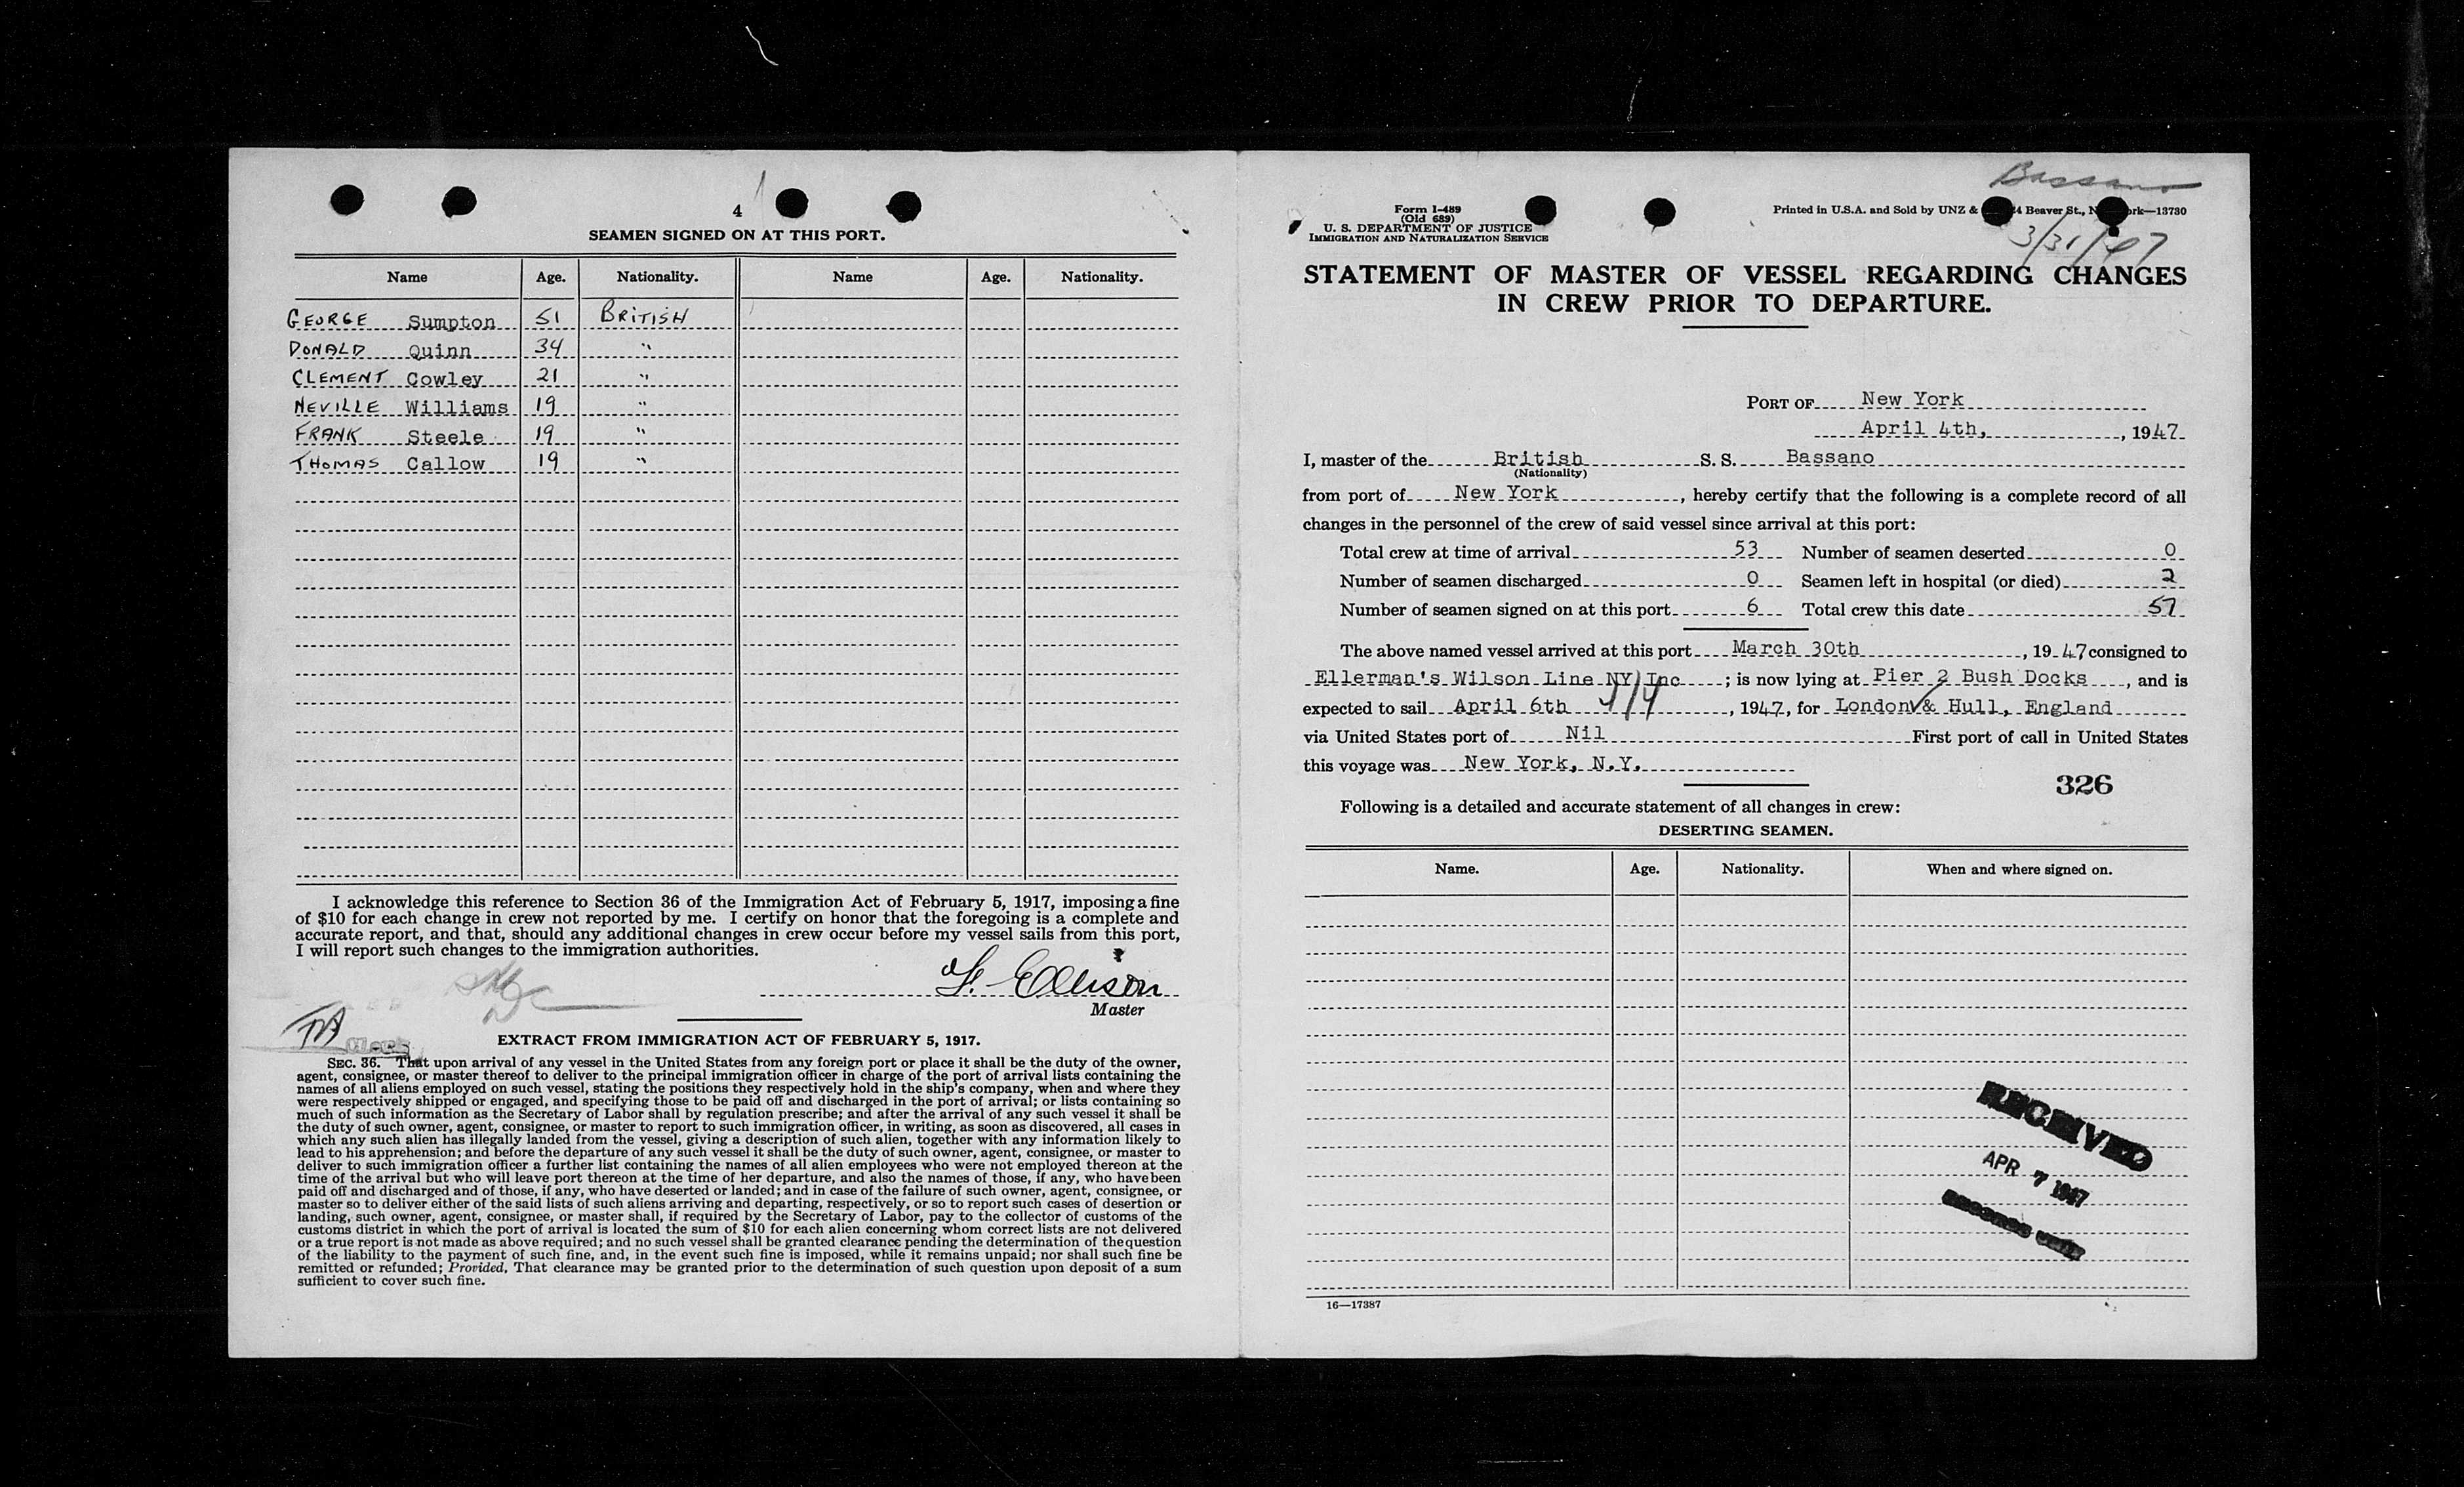 4
SEAMEN SIGNED ON AT THIS PORT.
Name Age. Nationality. Name Age. Nationality.
GEORGE Sumpton 51 BRITISH
DONALD Quinn 34 "
CLEMENT Cowley 21 "
NEVILLE Williams 19 "
FRANK Steele 19 "
THOMAS Callow 19 "
I acknowledge this reference to Section 36 of the Immigration Act of February 5, 1917, imposing a fine
of $10 for each change in crew not reported by me. I certify on honor that the foregoing is a complete and
accurate report, and that, should any additional changes in crew occur before my vessel sails from this port,
I will report such changes to the immigration authorities.
F. Ellison
Master
EXTRACT FROM IMMIGRATION ACT OF FEBRUARY 5, 1917.
SEC. 36. That upon arrival of any vessel in the United States from any foreign port or place it shall be the duty of the owner,
agent, consignee, or master thereof to deliver to the principal immigration officer in charge of the port of arrival lists containing the
names of all aliens employed on such vessel, stating the positions they respectively hold in the ship's company, when and where they
were respectively shipped or engaged, and specifying those to be paid off and discharged in the port of arrival; or lists containing so
much of such information as the Secretary of Labor shall by regulation prescribe; and after the arrival of any such vessel it shall be
the duty of such owner, agent, consignee, or master to report to such immigration officer, in writing, as soon as discovered, all cases in
which any such alien has illegally landed from the vessel, giving a description of such alien, together with any information likely to
lead to his apprehension; and before the departure of any such vessel it shall be the duty of such owner, agent, consignee, or master to
deliver to such immigration officer a further list containing the names of all alien employees who were not employed thereon at the
time of the arrival but who will leave port thereon at the time of her departure, and also the names of those, if any, who have been
paid off and discharged and of those, if any, who have deserted or landed; and in case of the failure of such owner, agent, consignee, or
master so to deliver either of the said lists of such aliens arriving and departing, respectively, or so to report such cases of desertion or
landing, such owner, agent, consignee, or master shall, if required by the Secretary of Labor, pay to the collector of customs of the
customs district in which the port of arrival is located the sum of $10 for each alien concerning whom correct lists are not delivered
or a true report is not made as above required; and no such vessel shall be granted clearance pending the determination of the question
of the liability to the payment of such fine, and, in the event such fine is imposed, while it remains unpaid; nor shall such fine be
remitted or refunded; Provided, That clearance may be granted prior to the determination of such question upon deposit of a sum
sufficient to cover such fine.
Bassano
3/31/47
Form I-489
(Old 689)
U. S. DEPARTMENT OF JUSTICE
IMMIGRATION AND NATURALIZATION SERVICE
Printed in U.S.A. and Sold by UNZ & Beaver St., 13730
STATEMENT OF MASTER OF VESSEL REGARDING CHANGES
IN CREW PRIOR TO DEPARTURE.
PORT OF New York
April 4th, , 1947
I, master of the British S. S. Bassano
(Nationality)
from port of New York , hereby certify that the following is a complete record of all
changes in the personnel of the crew of said vessel since arrival at this port:
Total crew at time of arrival 53 Number of seamen deserted 0
Number of seamen discharged 0 Seamen left in hospital (or died) 2
Number of seamen signed on at this port 6 Total crew this date 57
The above named vessel arrived at this port March 30th , 1947 consigned to
Ellerman's Wilson Line NY Inc ; is now lying at Pier 2 Bush Docks , and is
expected to sail April 6th 4/4 , 1947, for London & Hull, England
via United States port of Nil First port of call in United States
this voyage was New York, N.Y.
326
Following is a detailed and accurate statement of all changes in crew:
DESERTING SEAMEN.
Name. Age. Nationality. When and where signed on.
RECEIVED
APR 7 1947
16—17387